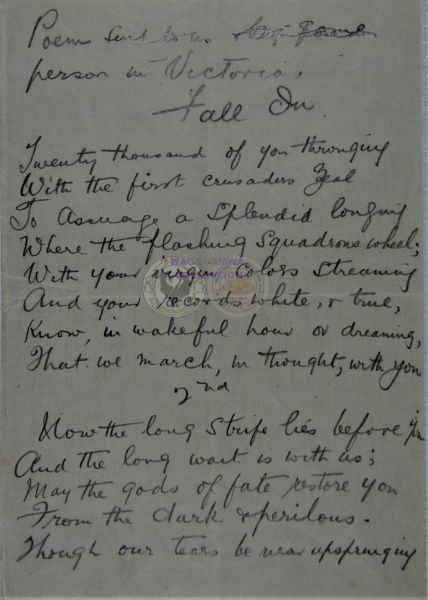 Poem sent to us
person in Victoria.
Fall In
Twenty thousand of you thronging
With the first crusaders Zeal
To Assuage a Splendid longing
Where the flashing Squadrons wheel;
With your virgin Colors Streaming
And your records white, & true,
Know, in wakeful hour or dreaming,
That we march, in thought, with you
2nd
Now the long Strife lies before you
And the long wait is with us;
May the gods of fate restore you
From the dark & perilous.
Though our tears be near upspringing